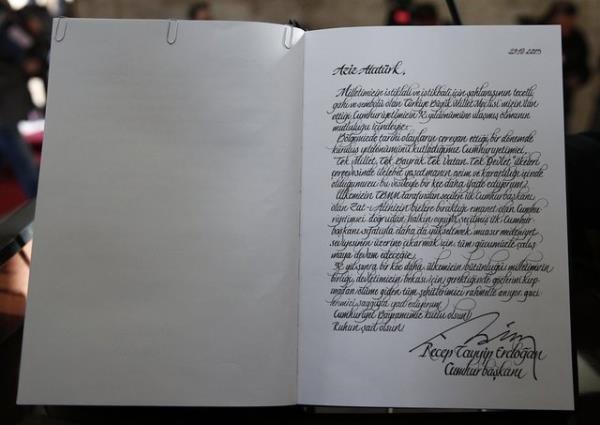 29.10.2015
Aziz Atatürk,
Milletimizin istiklali ve istikbali için şahlanışının tecelli-
gahı ve sembolü olan Türkiye Büyük Millet Meclisi'mizin ilan
ettiği Cumhuriyetimizin 92. yıldönümüne ulaşmış olmanın
mutluluğu içindeyiz.
Bölgemizde tarihi olayların cereyan ettiği bir dönemde
kuruluş yıldönümünü kutladığımız Cumhuriyetimizi,
"Tek Millet, Tek Bayrak, Tek Vatan, Tek Devlet" ilkeleri
çerçevesinde ilelebet yaşatmanın azim ve kararlılığı içinde
olduğumuzu bu vesileyle bir kez daha ifade ediyorum.
Ülkemizin TBMM tarafından seçilen ilk Cumhurbaşkanı
olan Zat-ı Alinizin bizlere bıraktığı emanet olan Cumhu-
riyetimizi doğrudan halkın oyuyla seçilmiş ilk Cumhur-
başkanı sıfatıyla daha da yükseltmek, muasır medeniyet
seviyesinin üzerine çıkarmak için tüm gücümüzle çalış-
maya devam edeceğiz.
92. yılında bir kez daha, ülkemizin bütünlüğü, milletimizin
birliği, devletimizin bekası için gerektiğinde gözlerini kırp-
madan ölüme giden tüm şehitlerimizi rahmetle anıyor, gazi-
lerimizi saygıyla yad ediyorum.
Cumhuriyet Bayramımız kutlu olsun!
Ruhun şad olsun!
Recep Tayyip Erdoğan
Cumhurbaşkanı